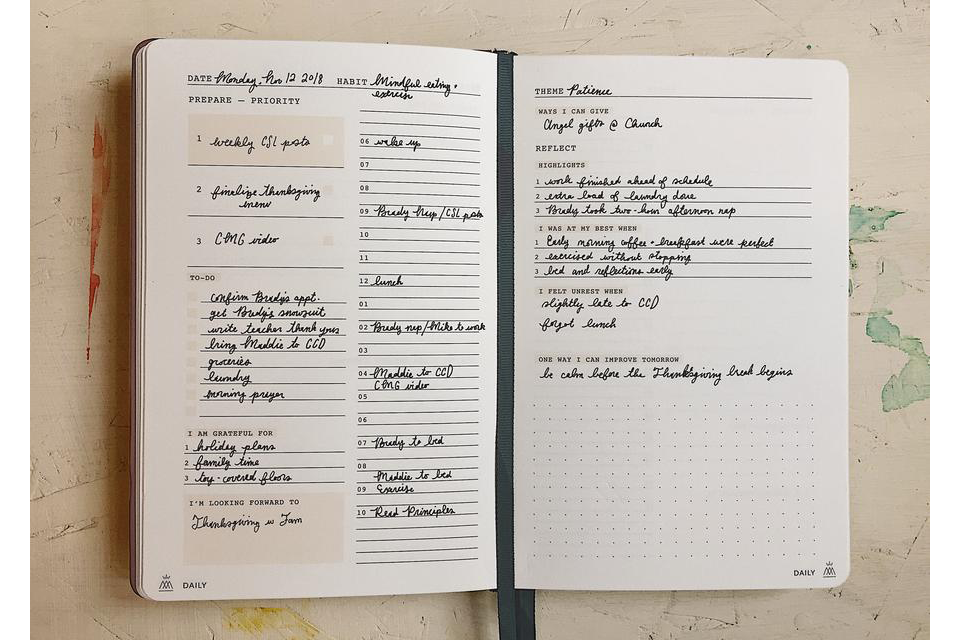 DATE Monday, Nov 12 2018 HABIT Mindful eating +
exercise
PREPARE — PRIORITY
1 weekly CSL posts
2 finalize Thanksgiving
menu
3 CMG video
TO-DO
confirm Brady's appt.
get Brady's snowsuit
write teacher thank yous
bring Maddie to CCD
groceries
laundry
morning prayer
I AM GRATEFUL FOR
1 holiday plans
2 family time
3 toy-covered floors
I'M LOOKING FORWARD TO
Thanksgiving w fam
06 wake up
07
08
09 Brady Nap/CSL posts
10
11
12 lunch
01
02 Brady nap/Mike to work
03
04 Maddie to CCD
CMG video
05
06
07 Brady to bed
08
Maddie to bed
09 Exercise
10 Read Principles
DAILY
THEME Patience
WAYS I CAN GIVE
Angel gifts @ Church
REFLECT
HIGHLIGHTS
1 work finished ahead of schedule
2 extra load of laundry done
3 Brady took two-hour afternoon nap
I WAS AT MY BEST WHEN
1 Early morning coffee + breakfast were perfect
2 exercised without stopping
3 bed and reflections early
I FELT UNREST WHEN
slightly late to CCD
forgot lunch
ONE WAY I CAN IMPROVE TOMORROW
be calm before the Thanksgiving break begins
DAILY